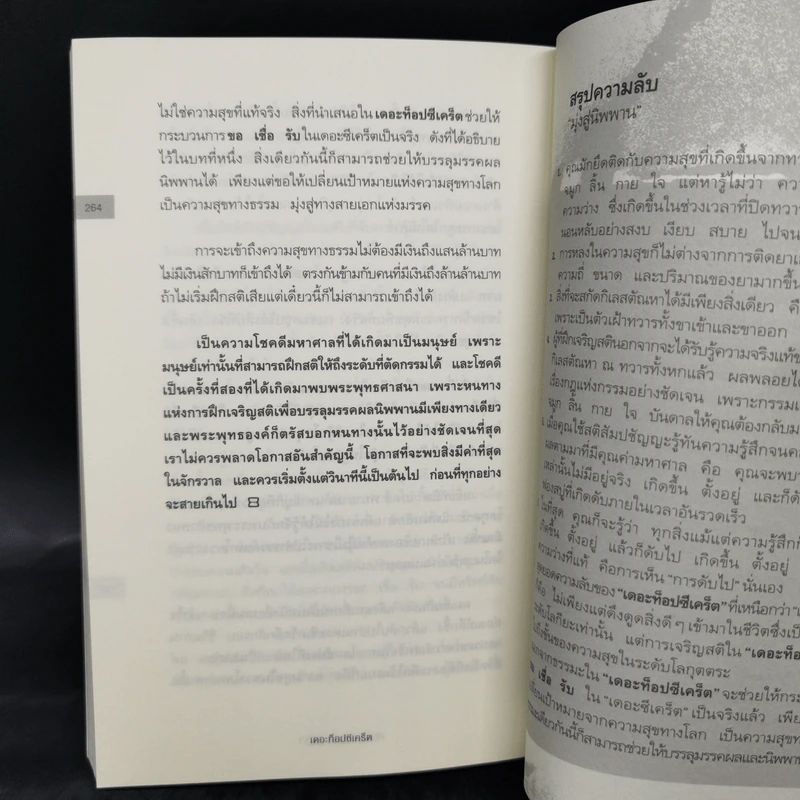 264
ไม่ใช่ความสุขที่แท้จริง สิ่งที่นำเสนอใน เดอะท็อปซีเคร็ต ช่วยให้
กระบวนการ ขอ เชื่อ รับ ในเดอะซีเคร็ตเป็นจริง ดังที่ได้อธิบาย
ไว้ในบทที่หนึ่ง สิ่งเดียวกันนี้ก็สามารถช่วยให้บรรลุมรรคผล
นิพพานได้ เพียงแต่ขอให้เปลี่ยนเป้าหมายแห่งความสุขทางโลก
เป็นความสุขทางธรรม มุ่งสู่ทางสายเอกแห่งมรรค
การจะเข้าถึงความสุขทางธรรมไม่ต้องมีเงินถึงแสนล้านบาท
ไม่มีเงินสักบาทก็เข้าถึงได้ ตรงกันข้ามกับคนที่มีเงินถึงล้านล้านบาท
ถ้าไม่เริ่มฝึกสติเสียแต่เดี๋ยวนี้ก็ไม่สามารถเข้าถึงได้
เป็นความโชคดีมหาศาลที่ได้เกิดมาเป็นมนุษย์ เพราะ
มนุษย์เท่านั้นที่สามารถฝึกสติให้ถึงระดับที่ตัดกรรมได้ และโชคดี
เป็นครั้งที่สองที่ได้เกิดมาพบพระพุทธศาสนา เพราะหนทาง
แห่งการฝึกเจริญสติเพื่อบรรลุมรรคผลนิพพานมีเพียงทางเดียว
และพระพุทธองค์ก็ตรัสบอกหนทางนั้นไว้อย่างชัดเจนที่สุด
เราไม่ควรพลาดโอกาสอันสำคัญนี้ โอกาสที่จะพบสิ่งมีค่าที่สุด
ในจักรวาล และควรเริ่มตั้งแต่วินาทีนี้เป็นต้นไป ก่อนที่ทุกอย่าง
จะสายเกินไป
เดอะท็อปซีเคร็ต
สรุปความลับ
"มุ่งสู่นิพพาน"
1. คุณมักยึดติดกับความสุขที่เกิดขึ้นจากทวา
จมูก ลิ้น กาย ใจ แต่หารู้ไม่ว่า ควา
ความว่าง ซึ่งเกิดขึ้นในช่วงเวลาที่ปิดทวาร
นอนหลับอย่างสงบ เงียบ สบาย ไปจน
2. การหลงในความสุขก็ไม่ต่างจากการติดยาเ
ความถี่ ขนาด และปริมาณของยามากขึ้น
3. สิ่งที่จะสกัดกิเลสตัณหาได้มีเพียงสิ่งเดียว คื
เพราะเป็นตัวเฝ้าทวารทั้งขาเข้าและขาออก
4. ผู้ที่ฝึกเจริญสตินอกจากจะได้รับรู้ความจริงแท้ข
กิเลสตัณหา ณ ทวารทั้งหกแล้ว ผลพลอยได้
เรื่องกฎแห่งกรรมอย่างชัดเจน เพราะกรรมเ
จมูก ลิ้น กาย ใจ บันดาลให้คุณต้องกลับม
เมื่อคุณใช้สติสัมปชัญญะรู้ทันความรู้สึกจนค
ผลตามมาที่มีคุณค่ามหาศาล คือ คุณจะพบว
เหล่านั้นไม่มีอยู่จริง เกิดขึ้น ตั้งอยู่ และก็ดั
ฟองสบู่ที่เกิดดับภายในเวลาอันรวดเร็ว
ในที่สุด คุณก็จะรู้ว่า ทุกสิ่งแม้แต่ความรู้สึกก็
เกิดขึ้น ตั้งอยู่ แล้วก็ดับไป เกิดขึ้น ตั้งอยู่
ความว่างที่แท้ คือการเห็น "การดับไป" นั่นเอง
สุดยอดความลับของ "เดอะท็อปซีเคร็ต" ที่เหนือกว่า
ก็คือ ไม่เพียงแต่ดึงดูดสิ่งดีๆ เข้ามาในชีวิตซึ่งเป็
ระดับโลกียะเท่านั้น แต่การเจริญสติใน "เดอะท็อป
ถึงขั้นของความสุขในระดับโลกุตตระ
จากธรรมะใน "เดอะท็อปซีเคร็ต" จะช่วยให้กระ
เชื่อ รับ ใน "เดอะซีเคร็ต" เป็นจริงแล้ว เพีย
เปลี่ยนเป้าหมายจากความสุขทางโลก เป็นความสุขท
และเดียวกันนี้ก็สามารถช่วยให้บรรลุมรรคผลและนิพพาน